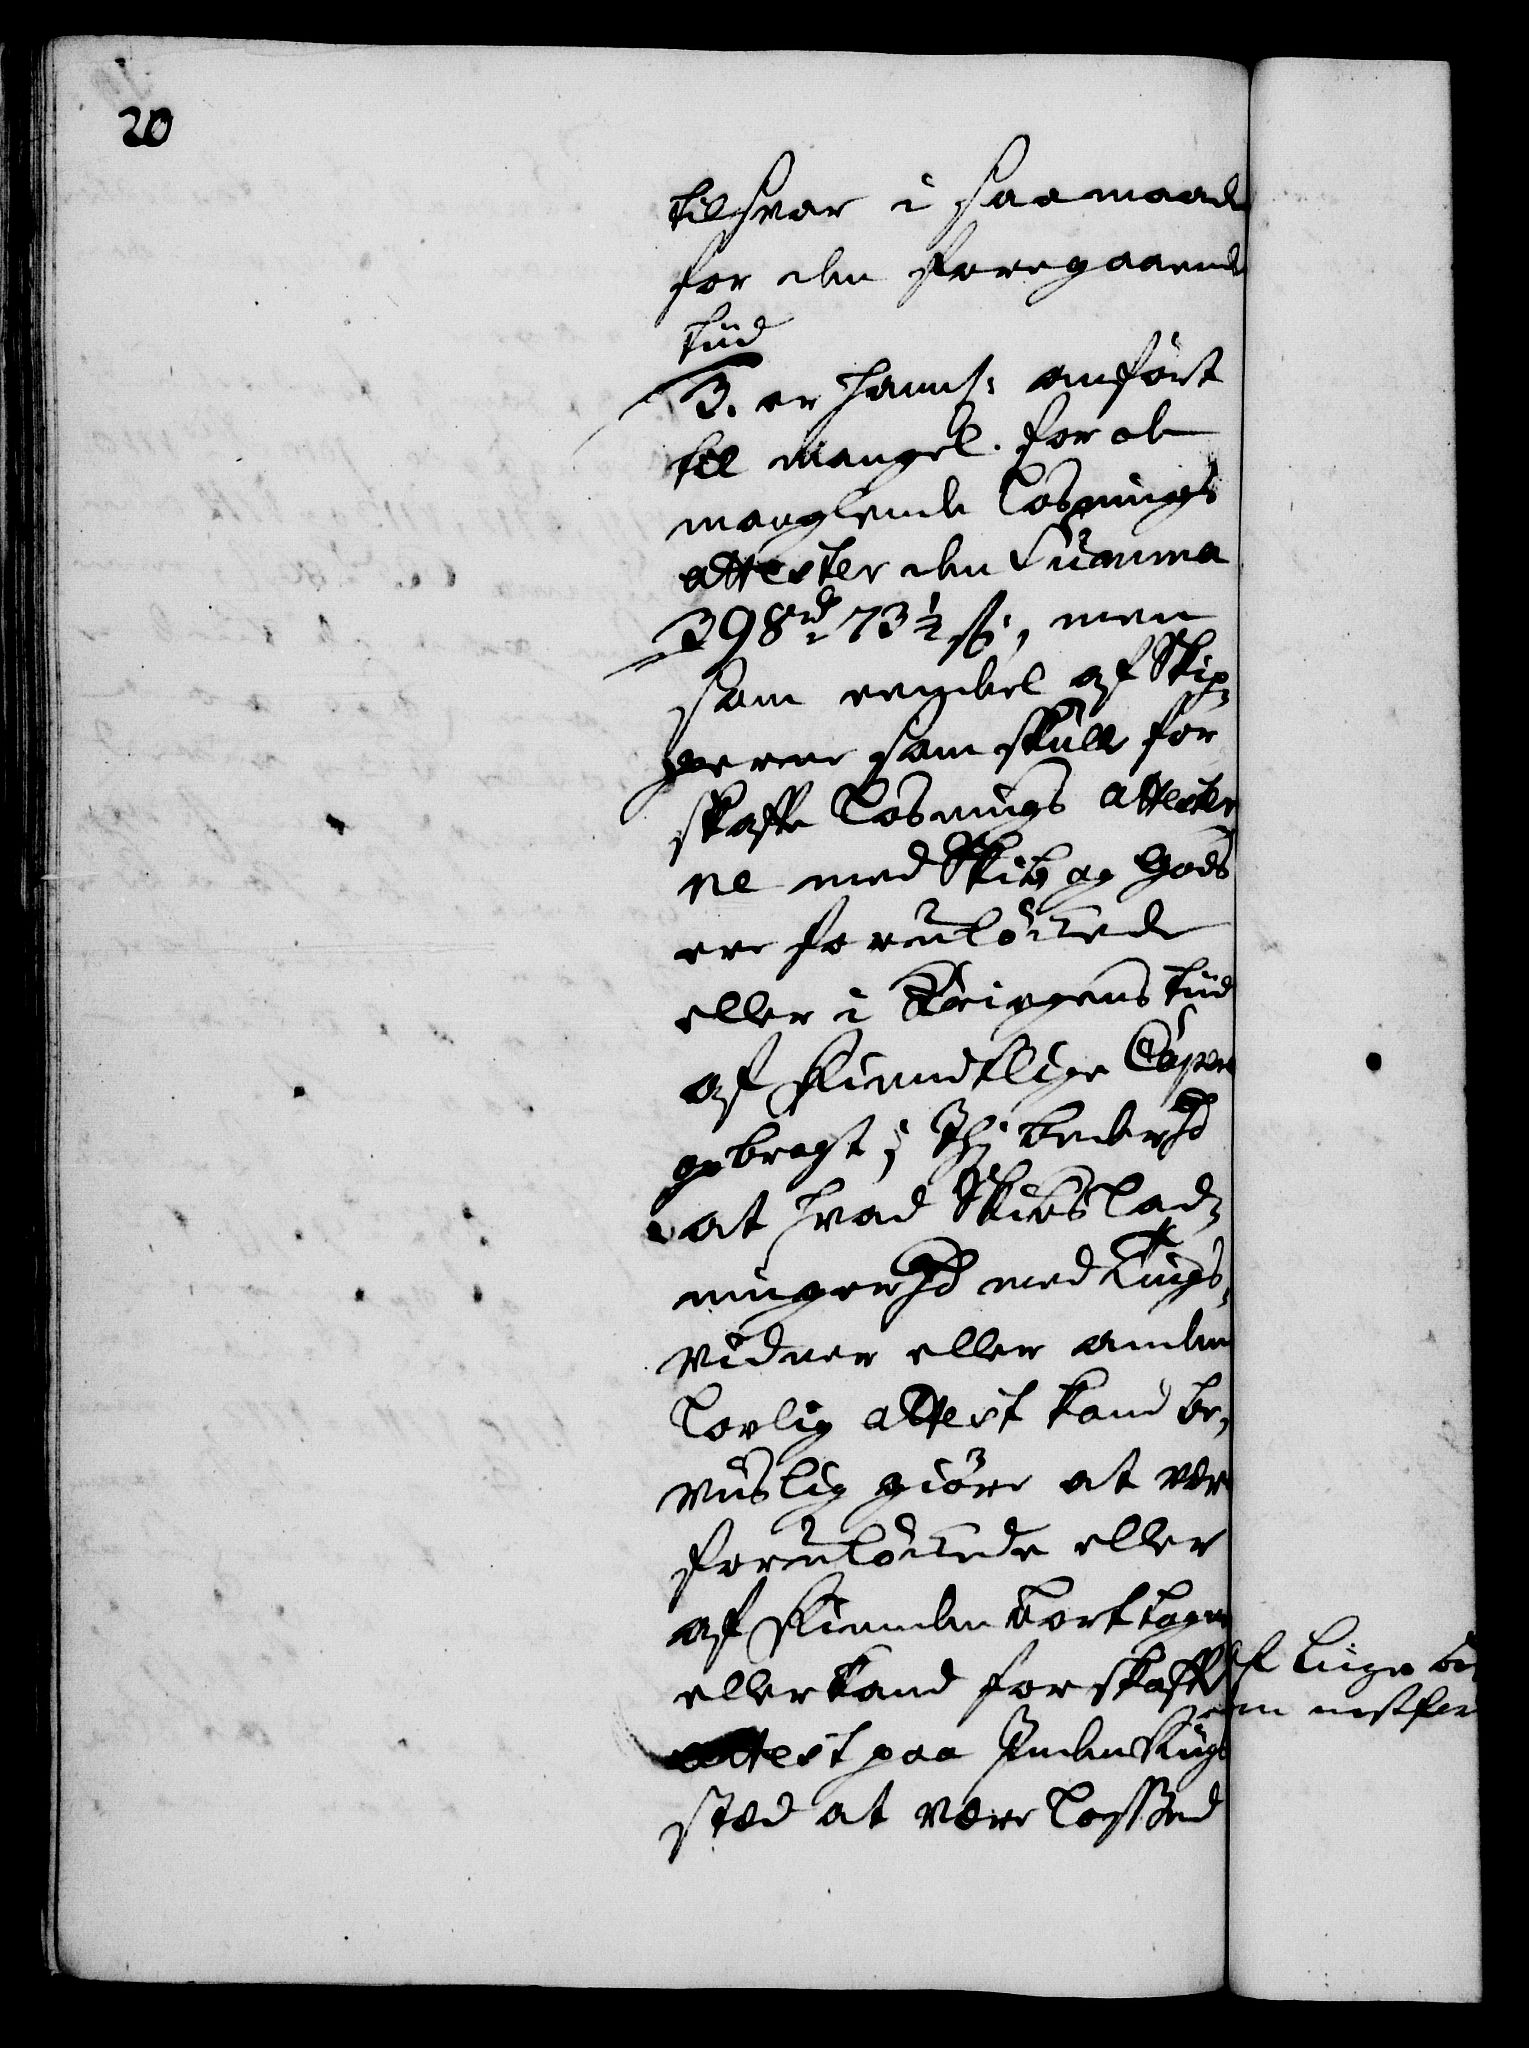 20
tilsvar i saa maade
for den foregaaende
tiid
3. er hannß: anført
til mangel. for de
manglende Losnings
attester den Summa
398 rd 73½ ß, men
som eendel af Skip
perne som skulle for
skaffe Losnings attester
ne med Skib og Gods
ere forulöckede
eller i Krigens tiid
af Fiendtlige Caper
opbragt; Thj beder
at hvad Skibs Lad
ninger med Tings
vidner eller anden
Lovlig attest kand be,
viislig giöre at være
forulöckede eller
af Fienden bort tagen
eller kand forskaffe
attest paa Inden Riigs
sted at være Losset